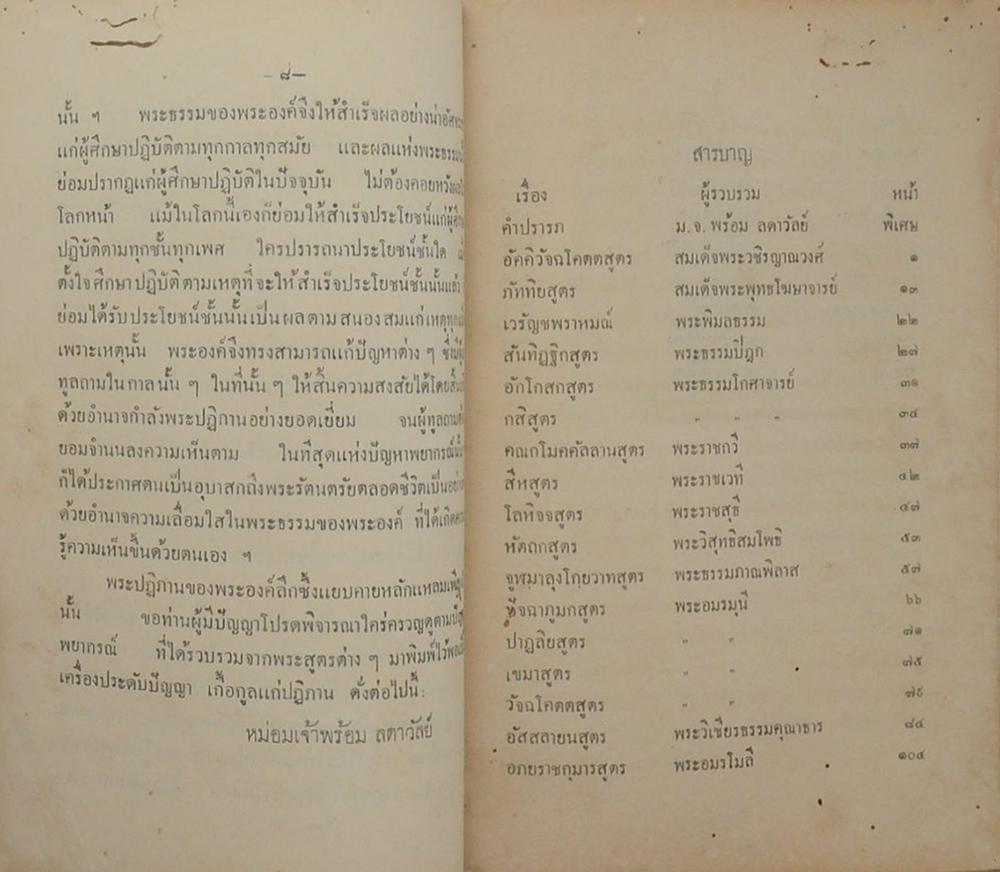 – ๘ –
นั้น ๆ พระธรรมของพระองค์จึงให้สำเร็จผลอย่างน่า
แก่ผู้ศึกษาปฏิบัติตามทุกกาลทุกสมัย และผลแห่งพระธรรม
ย่อมปรากฏแก่ผู้ศึกษาปฏิบัติในปัจจุบัน ไม่ต้องคอยหวังผล
โลกหน้า แม้ในโลกนี้เองก็ย่อมให้สำเร็จประโยชน์แก่
ปฏิบัติตามทุกชั้นทุกเพศ ใครปรารถนาประโยชน์ชั้นใด
ตั้งใจศึกษาปฏิบัติตามเหตุที่จะให้สำเร็จประโยชน์ชั้นนั้นแล้ว
ย่อมได้รับประโยชน์ชั้นนั้นเป็นผลตามสนองสมแก่เหตุ
เพราะเหตุนั้น พระองค์จึงทรงสามารถแก้ปัญหาต่าง ๆ
ทูลถามในกาลนั้น ๆ ในที่นั้น ๆ ให้สิ้นความสงสัยได้โดย
ด้วยอำนาจกำลังพระปฏิภานอย่างยอดเยี่ยม จนผู้ทูลถาม
ยอมจำนนลงความเห็นตาม ในที่สุดแห่งปัญหาพยากรณ์
ก็ได้ประกาศตนเป็นอุบาสกถึงพระรัตนตรัยตลอดชีวิตเป็น
ด้วยอำนาจความเลื่อมใสในพระธรรมของพระองค์ ที่ได้เกิด
รู้ความเห็นขึ้นด้วยตนเอง ฯ
พระปฏิภานของพระองค์ลึกซึ้งแยบคายหลักแหลม
นั้น ขอท่านผู้มีปัญญาโปรดพิจารณาใคร่ครวญดูตาม
พยากรณ์ ที่ได้รวบรวมจากพระสูตรต่าง ๆ มาพิมพ์ไว้
เครื่องประดับปัญญา เกื้อกูลแก่ปฏิภาน ดั่งต่อไปนี้:
หม่อมเจ้าพร้อม ลดาวัลย์
สารบาญ
เรื่อง ผู้รวบรวม หน้า
คำปรารภ ม.จ. พร้อม ลดาวัลย์ พิเศษ
อัคคิวัจฉโคตตสูตร สมเด็จพระวชิรญาณวงศ์ ๑
ภัททิยสูตร สมเด็จพระพุทธโฆษาจารย์ ๑๓
เวรัญชพราหมณ์ พระพิมลธรรม ๒๒
สันทิฏฐิกสูตร พระธรรมปิฎก ๒๗
อักโกสกสูตร พระธรรมโกศาจารย์ ๓๑
กสิสูตร " " " ๓๔
คณกโมคคัลลานสูตร พระราชกวี ๓๗
สีหสูตร พระราชเวที ๔๒
โลหิจจสูตร พระราชสุธี ๔๗
หัตถกสูตร พระวิสุทธิสมโพธิ ๕๓
จูฬมาลุงโกฺยวาทสูตร พระธรรมภาณพิลาส ๕๗
ปัจฉาภูมกสูตร พระอมรมุนี ๖๖
ปาฏลิยสูตร " " ๗๑
เขมาสูตร " " ๗๕
วัจฉโคตตสูตร " " ๗๙
อัสสลายนสูตร พระวิเชียรธรรมคุณาธาร ๘๔
อภยราชกุมารสูตร พระอมรโมลี ๑๐๔